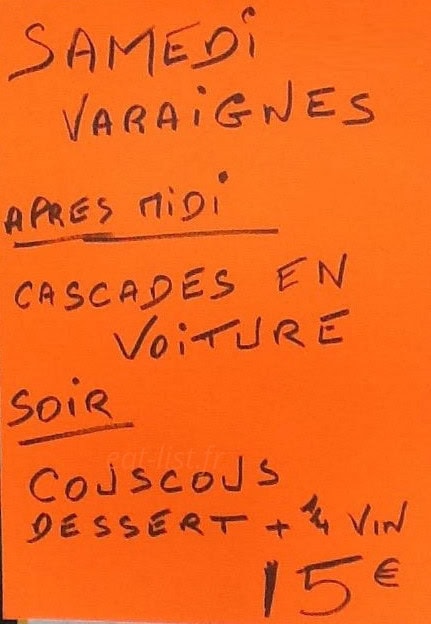 SAMEDI
VARAIGNES
APRES MIDI
CASCADES EN
VOITURE
SOIR
eat-list.fr
COUSCOUS
DESSERT + 1/4 VIN
15€